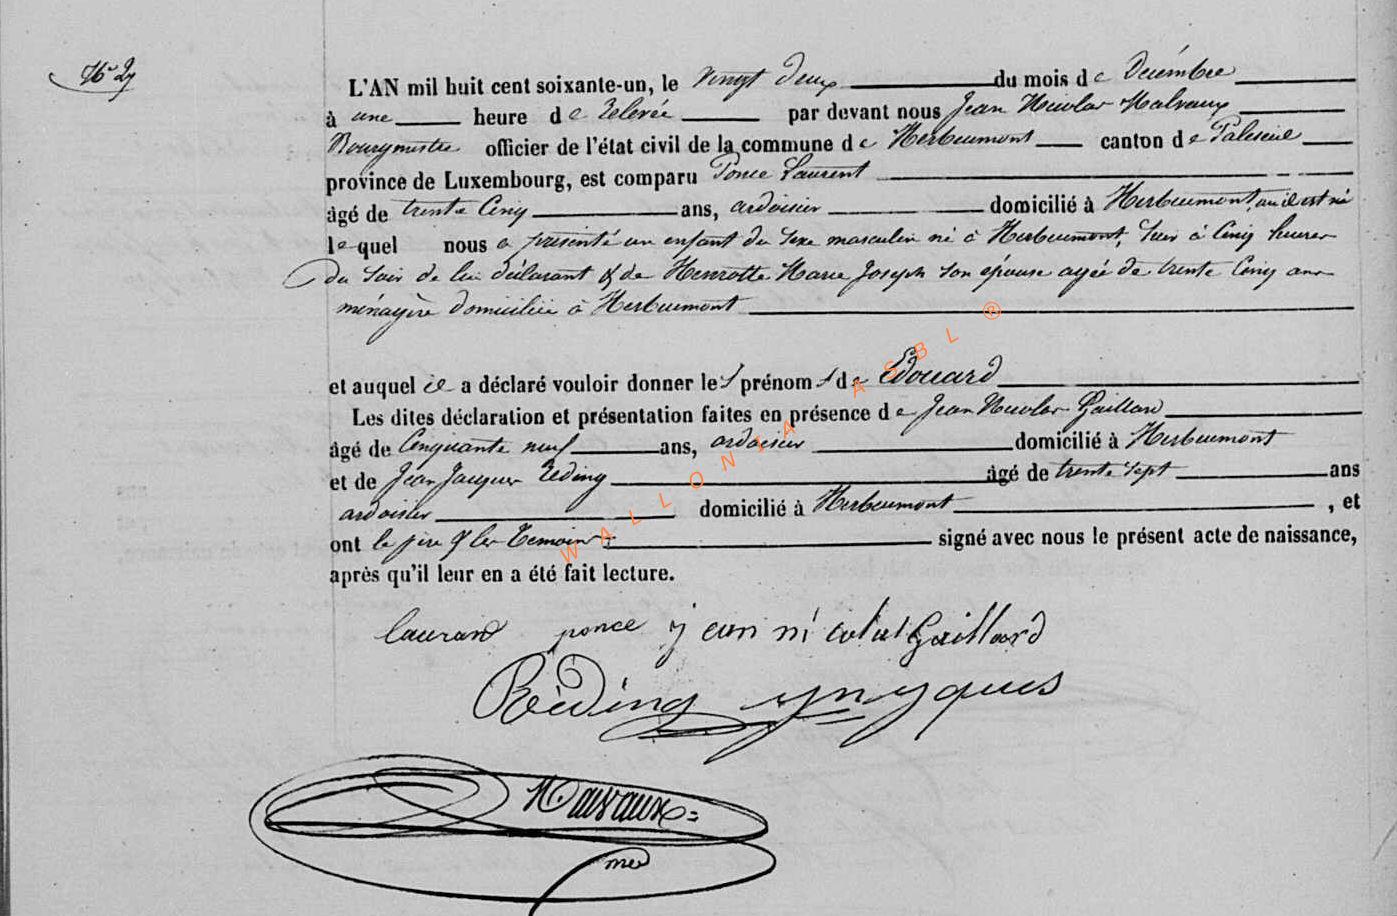 N° 27
L'AN mil huit cent soixante-un, le vingt deux du mois de Décembre
à une heure de relevée par devant nous Jean Nicolas Malvaux
Bourgmestre officier de l'état civil de la commune de Herbeumont canton de Paliseul
province de Luxembourg, est comparu Ponce Laurent
âgé de trente Cinq ans, ardoisier domicilié à Herbeumont, où il est né
lequel nous a présenté un enfant du sexe masculin né à Herbeumont, hier à Cinq heures
du soir de lui déclarant & de Henrotte Marie Joseph son épouse agée de trente Cinq ans
ménagère domiciliée à Herbeumont
et auquel il a déclaré vouloir donner le prénom de Edouard
Les dites déclaration et présentation faites en présence de Jean Nicolas Gaillard
âgé de Cinquante neuf ans, ardoisier domicilié à Herbeumont
et de Jean Jacques Reding âgé de trente sept ans
ardoisier domicilié à Herbeumont , et
ont le père & les Temoins signé avec nous le présent acte de naissance,
après qu'il leur en a été fait lecture.
laurand ponce jean nicolas Gaillard
Reding
Malvaux
WALLONIA ASBL ®